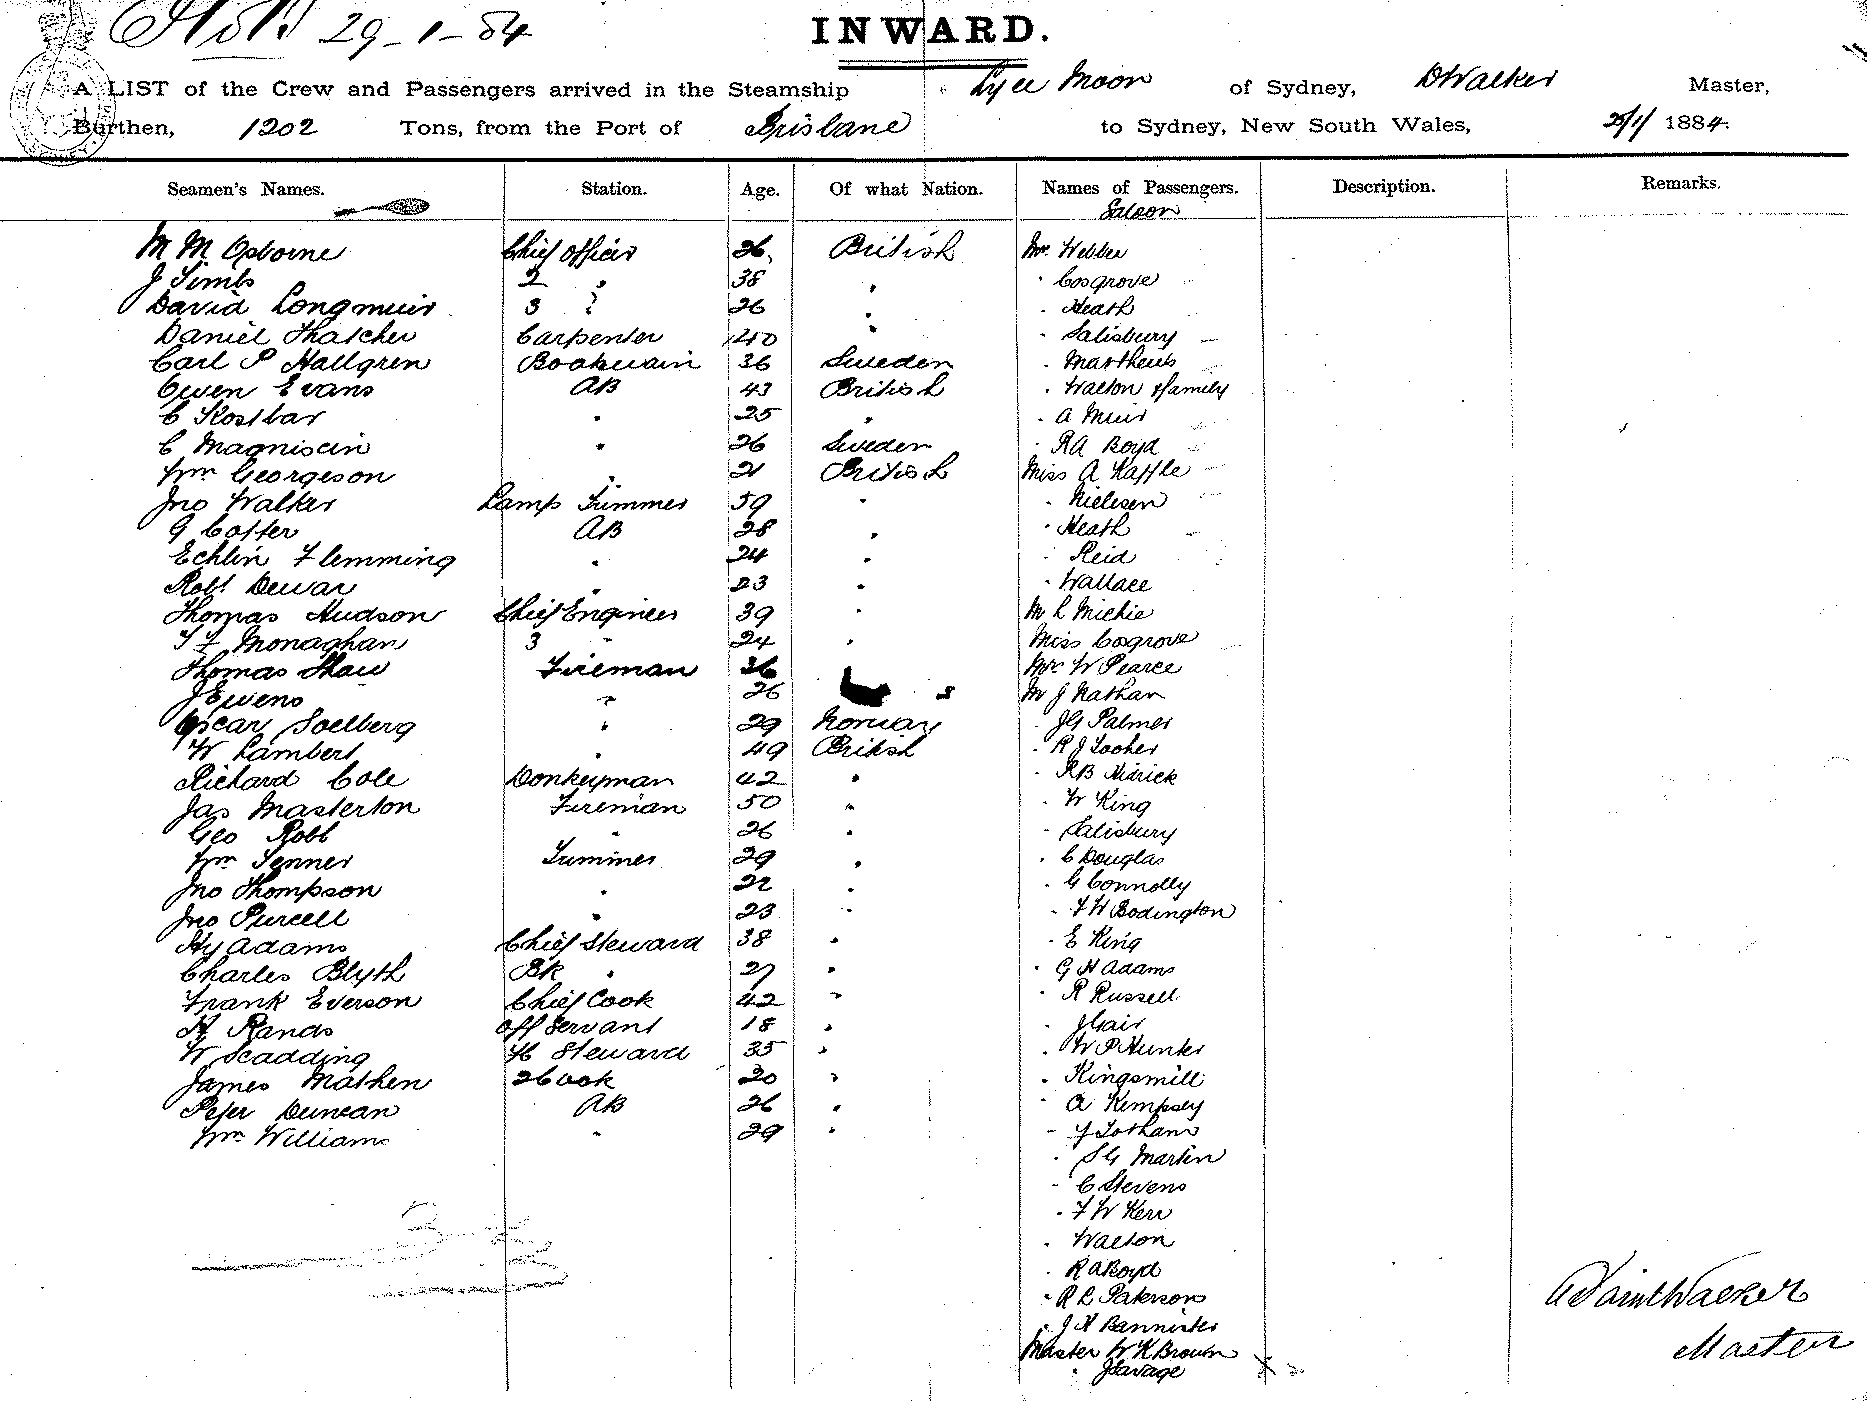 29-1-84
INWARD.
A LIST of the Crew and Passengers arrived in the Steamship Lyee Moon of Sydney, D Walker Master,
Burthen, 1202 Tons, from the Port of Brisbane to Sydney, New South Wales, 1884.
Seamen's Names. Station. Age. Of what Nation. Names of Passengers. Description. Remarks.
Saloon
M M Osborne Chief Officer 26 British Mr Webber
J Timbs 2 " 38 " " Cosgrove
David Longmuir 3 " 26 " " Heath
Daniel Thatcher Carpenter 40 " " Salisbury
Carl P Hallgren Boatswain 36 Sweden " Matthews
Owen Evans AB 43 British " Walton & family
C Kostbar " 25 " " A Muir
C Magniscin " 26 Sweden " RA Boyd
Wm Georgeson " 21 British Miss A Kaffle
Jno Walker Lamp Trimmer 59 " " Nielesen
G Cotter AB 28 " " Heath
Echlin Flemming " 24 " " Reid
Robt Dewar " 23 " " Wallace
Thomas Hudson Chief Engineer 39 " M L Michie
T F Monaghan 3 " 24 " Miss Cosgrove
Thomas Shaw Fireman 36 W Pearce
J Ewens " 26 M J Nathan
Oscar Soelberg " 29 Norway " JG Palmer
W Lambert " 49 British " R J Looher
Richard Cole Donkeyman 42 " " RB Hidrick
Jas Masterton Fireman 50 " " W King
Geo Robb " 26 " " Salisbury
Wm Jenner Trimmer 29 " " C Douglas
Jno Thompson " 22 " " G Connolly
Jno Purcell " 23 " " F W Bodington
Hy Adams Chief Steward 38 " " E King
Charles Blyth BK " 27 " " G H Adams
Frank Everson Chief Cook 42 " " R Russell
H Rands Off Servant 18 " " J Gair
W Scadding Steward 35 " " W P Hunter
James Mathen 2 Cook 20 " " Kingsmill
Peter Duncan AB 26 " " A Kempsey
Wm Williams " 29 " " Lotham
" S G Martin
" C Stevens
" F W Kerr
" Walton
" R A Boyd
" R L Paterson
" J H Bannister
Master W K Brown
" J Savage
Walker
Master